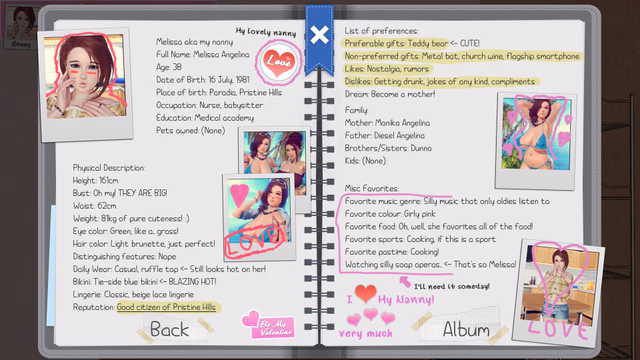 Roxxy
My Lovely nanny
Melissa aka my nanny
Full Name: Melissa Angelina
Age: 38
Date of Birth: 16 July, 1981
Place of birth: Paradia, Pristine Hills
Occupation: Nurse, babysitter
Education: Medical academy
Pets owned: (None)
Love
Physical Description:
Height: 161cm
Bust: Oh my! THEY ARE BIG!
Waist: 62cm
Weight: 81kg of pure cuteness! :)
Eye color: Green, like a.. grass!
Hair color: Light brunette, just perfect!
Distinguishing features: Nope
Daily Wear: Casual, ruffle top <- Still looks hot on her!
Bikini: Tie-side blue bikini <- BLAZING HOT!
Lingerie: Classic, beige lace lingerie
Reputation: Good citizen of Pristine Hills
LOVE
Back
Be My
Valentine
List of preferences:
Preferable gifts: Teddy bear <- CUTE!
Non-preferred gifts: Metal bat, church wine, flagship smartphone
Likes: Nostalgia, rumors
Dislikes: Getting drunk, jokes of any kind, compliments
Dream: Become a mother!
Family:
Mother: Monika Angelina
Father: Diesel Angelina
Brothers/Sisters: Dunno
Kids: (None)
Misc Favorites:
Favorite music genre: Silly music that only oldies listen to
Favorite colour: Girly pink
Favorite food: Oh, well, she favorites all of the food!
Favorite sports: Cooking, if this is a sport
Favorite pastime: Cooking!
Watching silly soap operas. <- That's so Melissa!
I'll need it someday!
I My Nanny!
very much
Album
LOVE